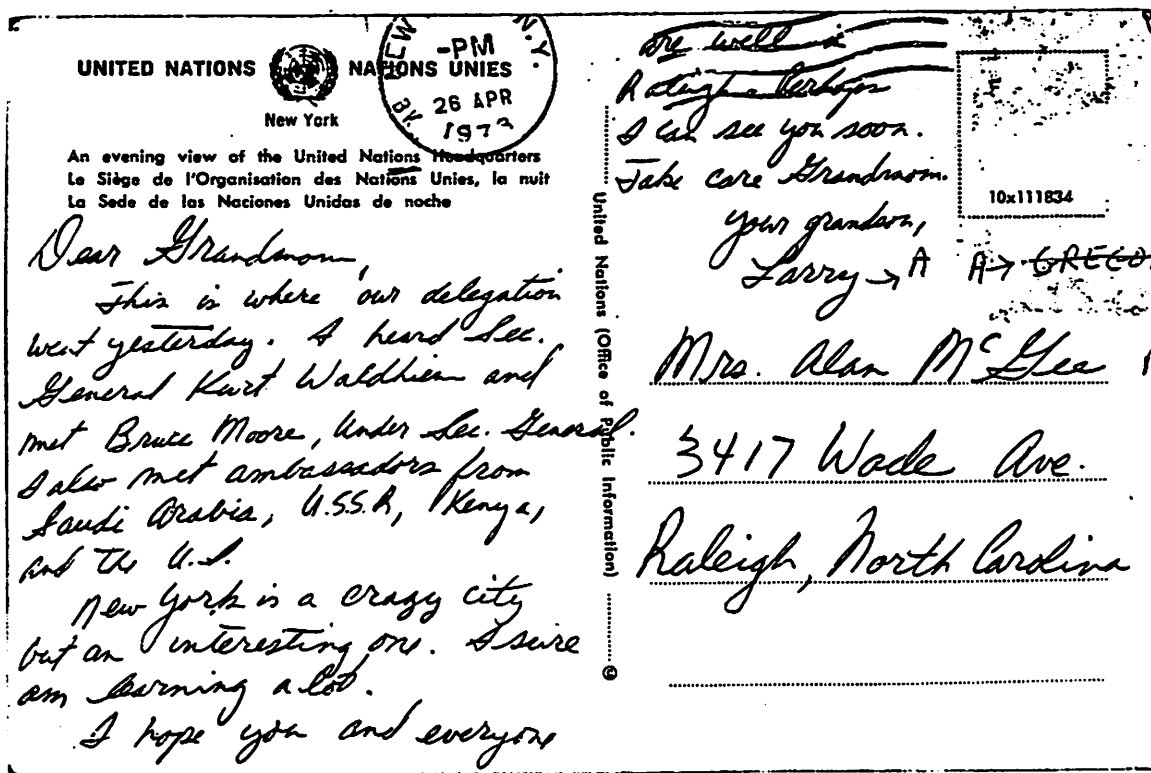 UNITED NATIONS NATIONS UNIES
New York
NEW N.Y.
-PM
26 APR
1973
An evening view of the United Nations Headquarters
Le Siège de l'Organisation des Nations Unies, la nuit
La Sede de las Naciones Unidas de noche
Dear Grandmom,
This is where our delegation
went yesterday. I heard Sec.
General Kurt Waldhiem and
met Bruce Moore, Under Sec. General.
I also met ambassadors from
Saudi Arabia, U.S.S.R, Kenya,
and the U.S.
New York is a crazy city
but an interesting one. I sure
am learning a lot.
I hope you and everyone
are well in
Raleigh. Perhaps
I can see you soon.
Take care Grandmom.
Your grandson,
Larry → A
United Nations (Office of Public Information) ©
10x111834
A →
Mrs. Alan McGee
3417 Wade Ave.
Raleigh, North Carolina